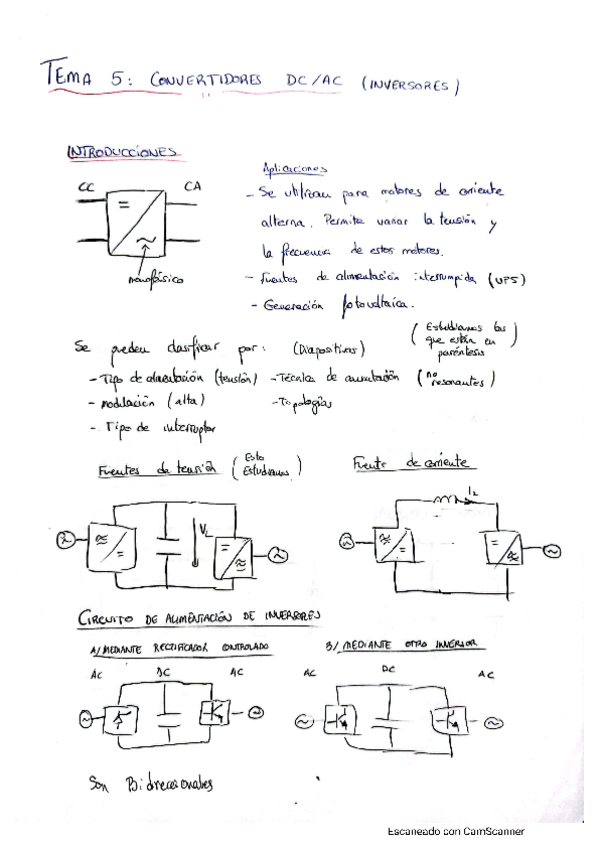 TEMA 5: CONVERTIDORES DC/AC (INVERSORES)
INTRODUCCIONES
CC
CA
=
~
monofásico
Aplicaciones
- Se utilizan para motores de corriente
alterna. Permite variar la tensión y
la frecuencia de estos motores.
- Fuentes de alimentación interrumpida (UPS)
- Generación fotovoltaica.
Se pueden clasificar por: (Diapositivas)
(Estudiamos las
que están en
paréntesis)
- Tipo de alimentación (tensión) - Técnica de conmutación (no
resonantes)
- modulación (alta) - Topologías
- Tipo de interruptor
Fuentes de tensión (Esto
Estudiamos)
Fuente de corriente
CIRCUITO DE ALIMENTACIÓN DE INVERSORES
A/ MEDIANTE RECTIFICADOR CONTROLADO
B/ MEDIANTE OTRO INVERSOR
AC DC AC
AC DC AC
Son Bidireccionales
Escaneado con CamScanner